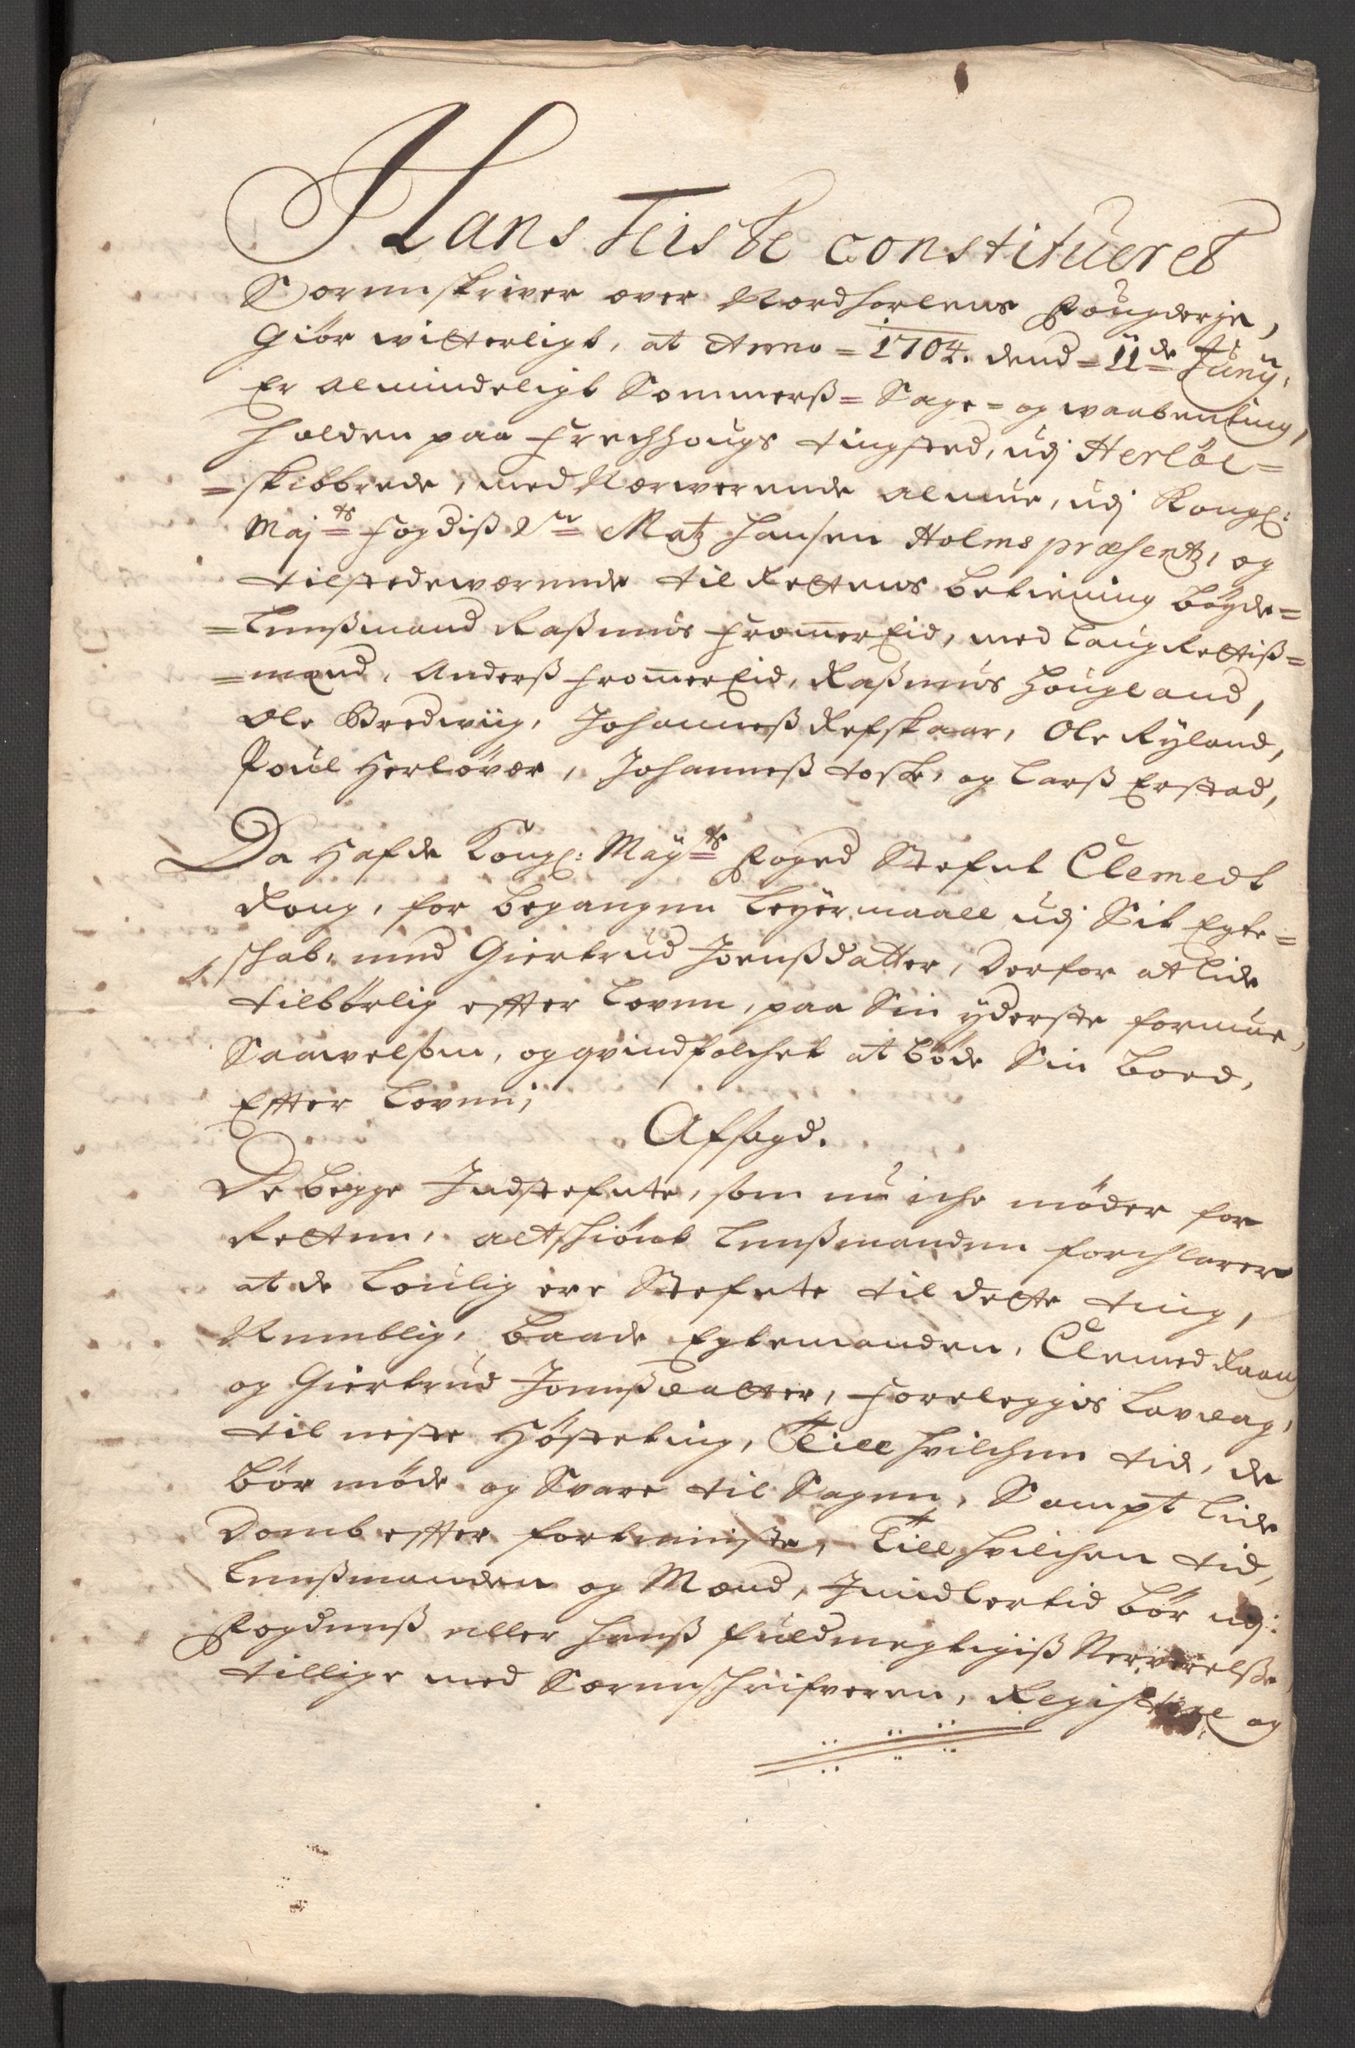 Hans Teiste constitueret
Sorenskriver over Nordhorlens Fougderje,
Giør witterligt, at Anno = 1704. dend = 11de Juny,
Er almindeligt Sommerß = Sage = og waabenting,
holden paa Frechhougs tingsted, udj Herløe =
= skibbrede, med Nærwerende almue, udj Kongl:
Maj:ts fogdiß Sr Matz Hansen Holms præsentz, og
tilstedewærende til Rettens betiening bøyde =
= Lenßmand Raßmus FrommerEid, med LaugRettiß =
= mænd, Anderß FrommerEid, Raßmus Hougland,
Ole Bredwiig, Johanneß Refskaar, Ole Ryland,
Poul Herløvær, Johanneß toske, og Larß Erstad,
Da Hafde Kongl: Maytts Foged Stefnt Clemedt
Rong, for begangen Leyermaall udj Sit Egte =
schab, med Giertrud Joenßdatter, derfor at lide
tilbørlig effter Loven, paa Sin yderste formue,
Saawelsom, og qvindfolchet at bøde Sin boed,
Effter Loven;
Afsagd.
De begge Indstefnte, som nu iche møder for
Retten, altschiønt Lenßmanden forchlarer
at de Loulig ere Stefnte til dette ting,
Nemblig, baade Egtemanden, Clemed Raang
og Giertrud Jonnßdatter, foreleggis Lavdag,
til neste Høsteting, Till hvilchen tid, de
bør møde og Svare til Sagen, Sampt lide
Domb effter fortieniste, Till hvilchen tid,
Lenßmanden og Mænd, Imidlertid bør udj:
Fogdenß eller hanß fuldmegtigiß Nerverelße,
tillige med Sorenschrifveren, Registere og